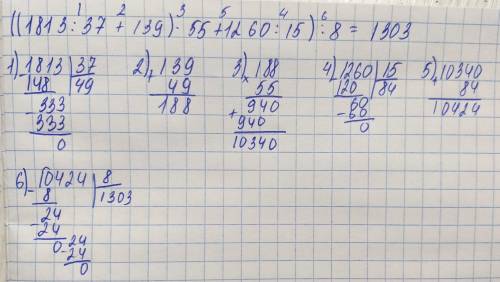 1 2 3 5 4 6
((1813:37 + 139)·55+1260:15):8 = 1303
1) 1813 37 2) 139 3) 188 4) 1260 15 5) 10340
148 49 + 49 × 55 120 84 + 84
- 333 188 940 - 60 10424
333 + 940 60
0 10340 0
6) - 10424 8
8 1303
- 24
24
0 - 24
24
0